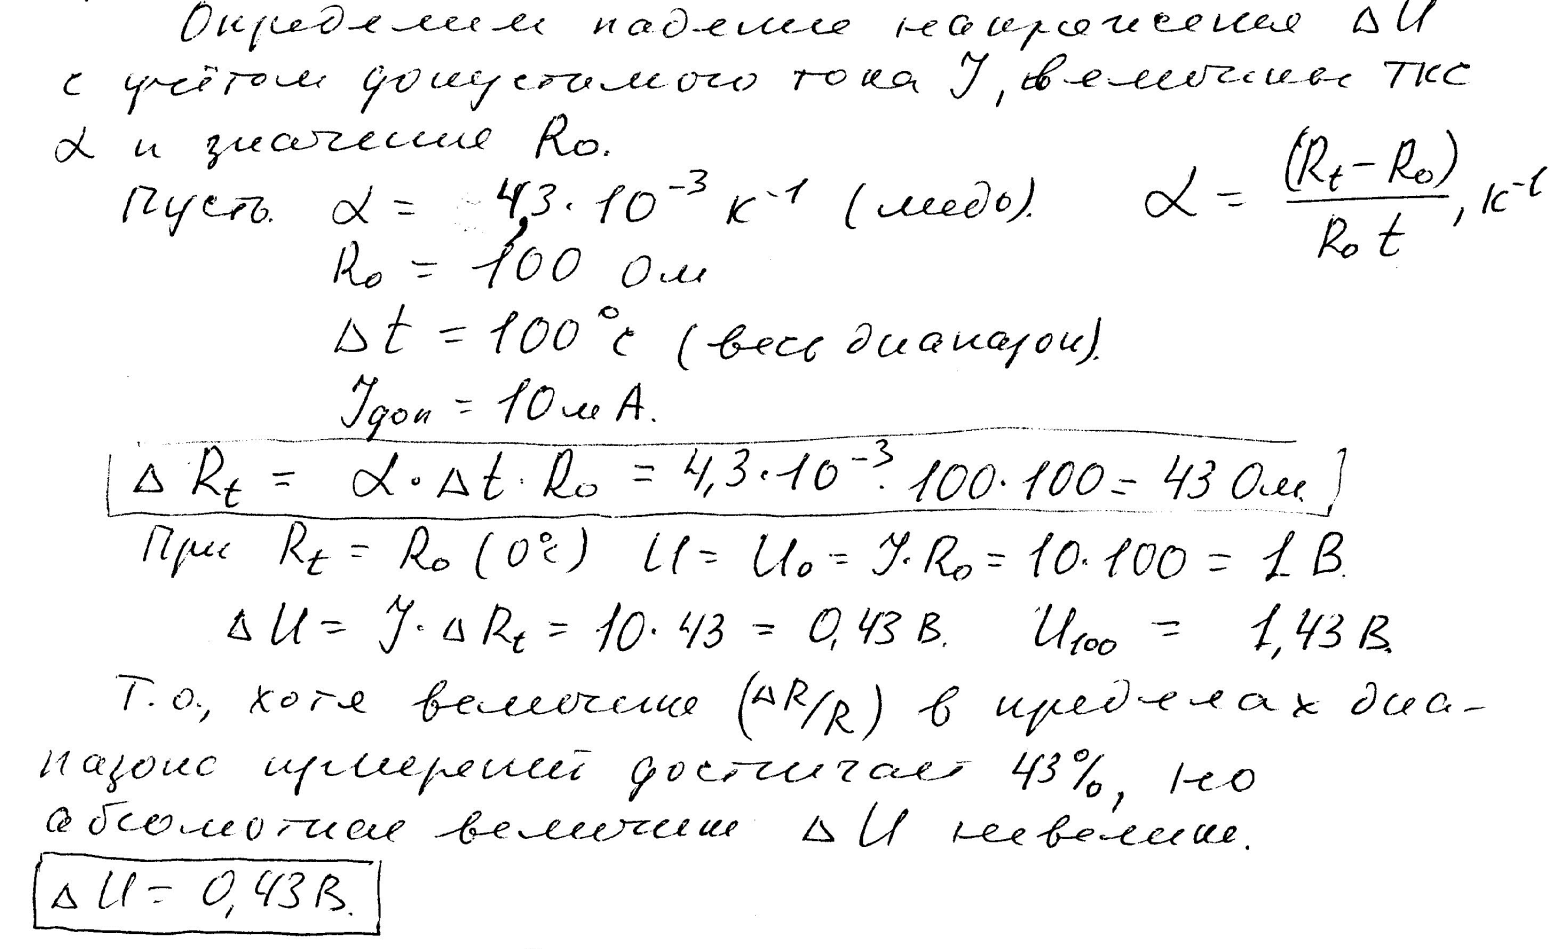 Определим падение напряжения ΔU
с учётом допустимого тока J, величины ТКС
α и значение R₀.
Пусть α = 4,3·10⁻³ К⁻¹ (медь). α = (Rₜ – R₀) / R₀ t, К⁻¹
R₀ = 100 Ом
Δt = 100°C (весь диапазон).
Jдоп = 10 мА.
ΔRₜ = α·Δt·R₀ = 4,3·10⁻³·100·100 = 43 Ом.
При Rₜ = R₀ (0°C) U = U₀ = J·R₀ = 10·100 = 1 В.
ΔU = J·ΔRₜ = 10·43 = 0,43 В. U₁₀₀ = 1,43 В.
Т.о., хотя величина (ΔR/R) в пределах диа-
пазона измерений достигает 43%, но
абсолютная величина ΔU невелика.
ΔU = 0,43 В.